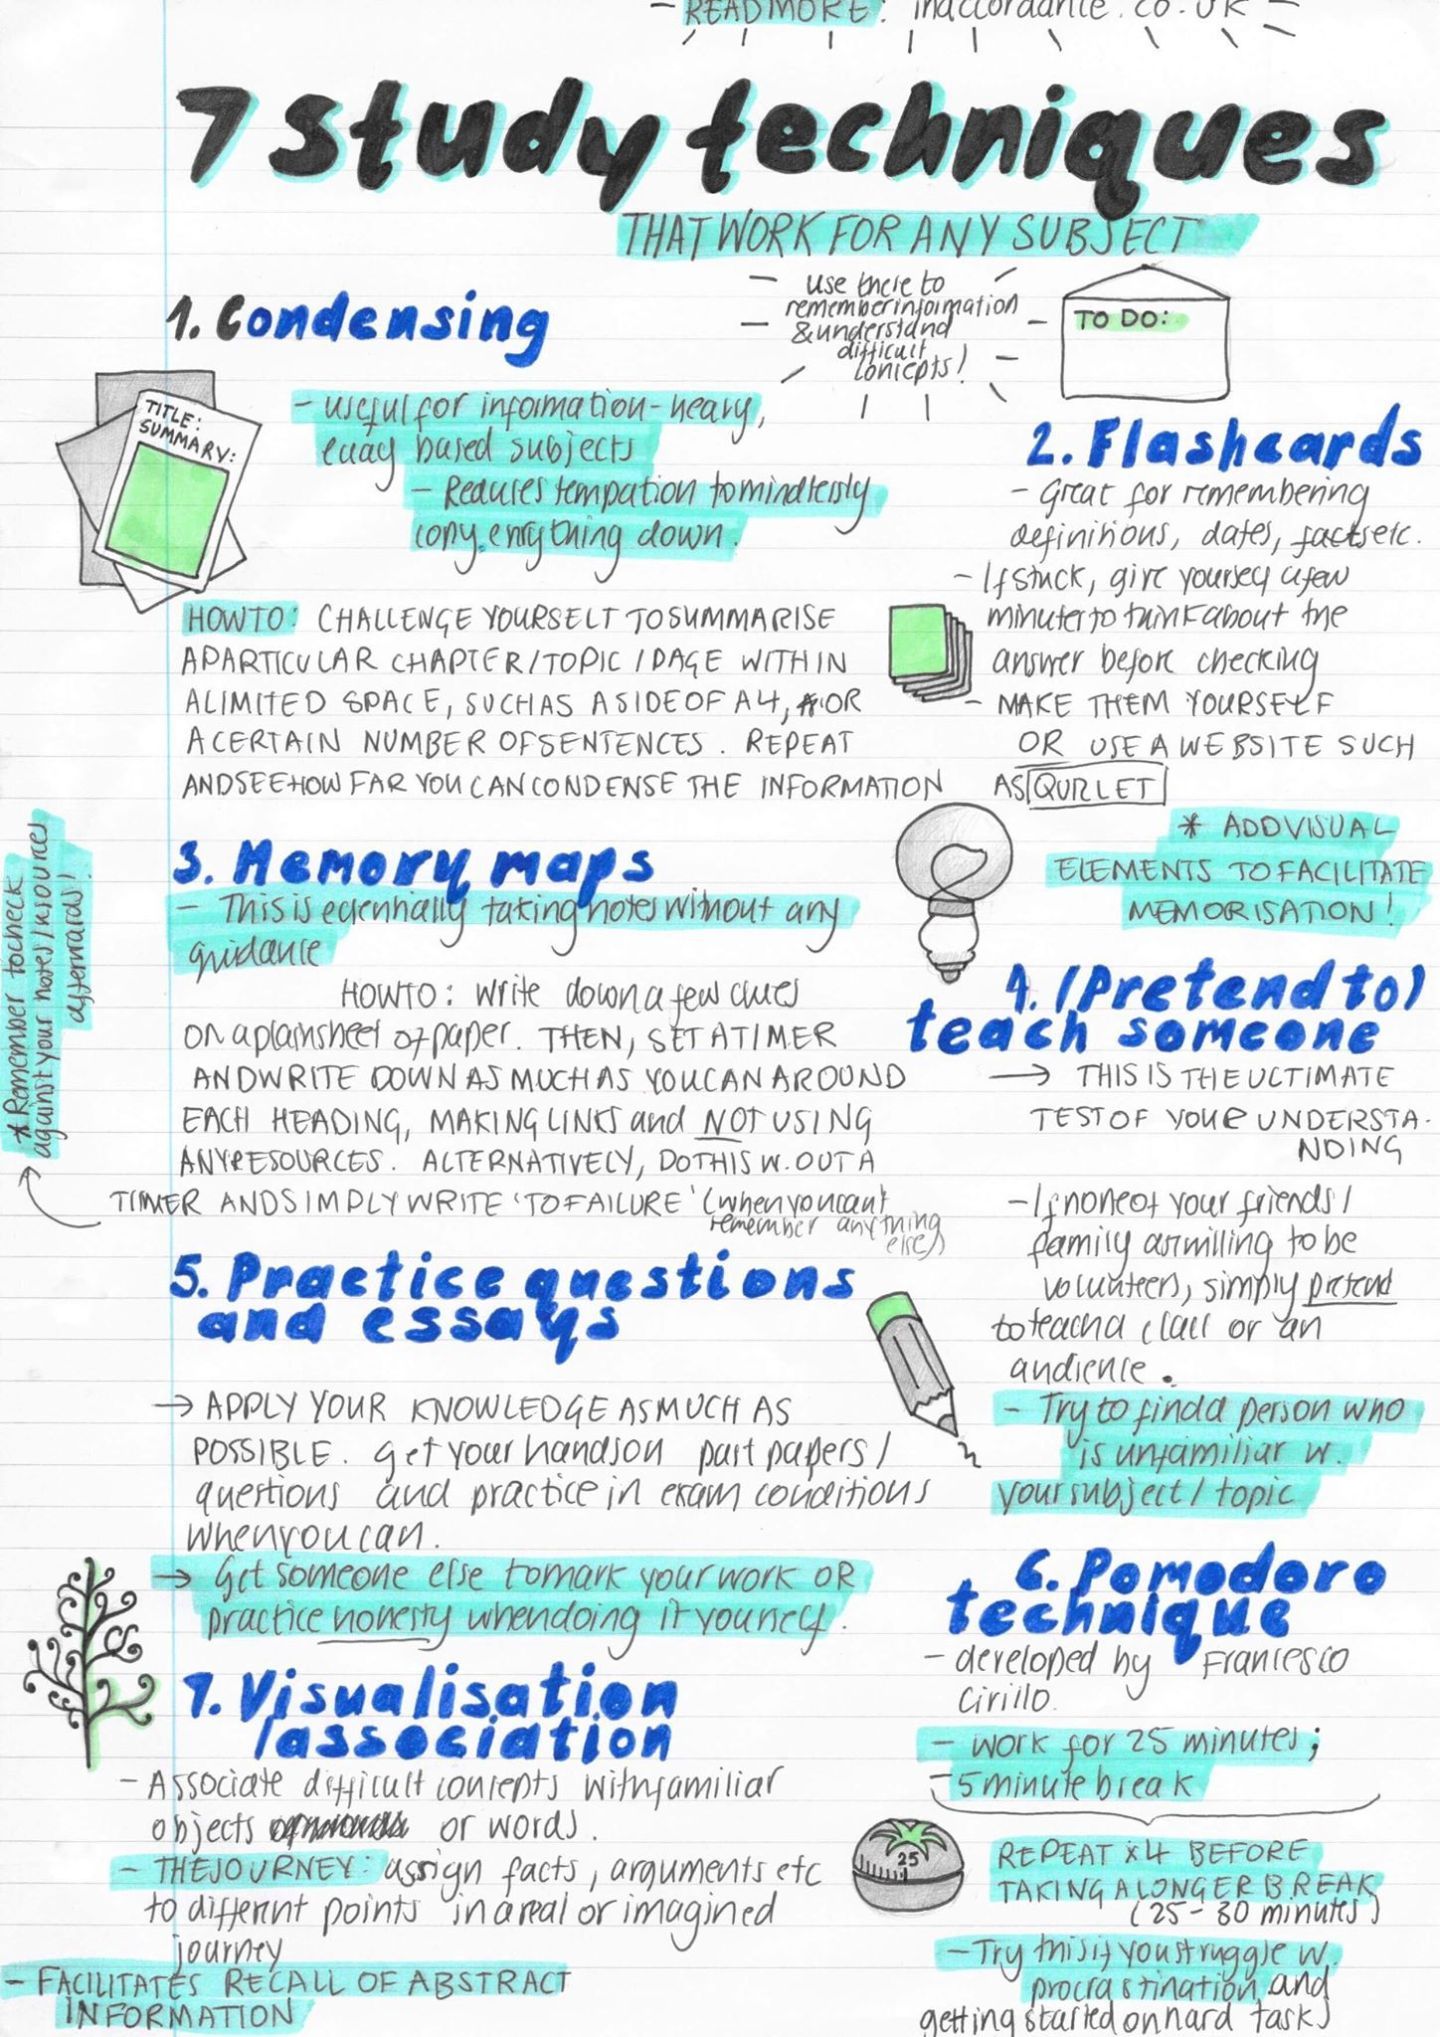 - READ MORE: inaccordance.co.uk -
7 study techniques
THAT WORK FOR ANY SUBJECT
use these to
remember information
& understand
difficult
concepts!
TO DO:
1. Condensing
TITLE:
SUMMARY:
- useful for information-heavy,
essay based subjects
- Reduces temptation to mindlessly
copy everything down.
HOW TO: CHALLENGE YOURSELF TO SUMMARISE
A PARTICULAR CHAPTER/TOPIC/PAGE WITHIN
A LIMITED SPACE, SUCH AS A SIDE OF A4, OR
A CERTAIN NUMBER OF SENTENCES. REPEAT
AND SEE HOW FAR YOU CAN CONDENSE THE INFORMATION
2. Flashcards
- Great for remembering
definitions, dates, facts etc.
- If stuck, give yourself a few
minutes to think about the
answer before checking
- MAKE THEM YOURSELF
OR USE A WEBSITE SUCH
AS QUIZLET
* ADD VISUAL
ELEMENTS TO FACILITATE
MEMORISATION!
3. Memory maps
- This is essentially taking notes without any
guidance
HOW TO: write down a few clues
on a plain sheet of paper. THEN, SET A TIMER
AND WRITE DOWN AS MUCH AS YOU CAN AROUND
EACH HEADING, MAKING LINKS and NOT USING
ANY RESOURCES. ALTERNATIVELY, DO THIS W. OUT A
TIMER AND SIMPLY WRITE 'TO FAILURE' (when you can't
remember anything
else)
* Remember to check
against your notes/resources
afterwards!
4. (Pretend to)
teach someone
→ THIS IS THE ULTIMATE
TEST OF YOUR UNDERSTA-
NDING
- If none of your friends/
family are willing to be
volunteers, simply pretend
to teach a class or an
audience.
- Try to find a person who
is unfamiliar w.
your subject/topic
5. Practice questions
and essays
→ APPLY YOUR KNOWLEDGE AS MUCH AS
POSSIBLE. get your hands on past papers/
questions and practice in exam conditions
when you can.
→ Get someone else to mark your work OR
practice honesty when doing it yourself.
6. Pomodoro
technique
- developed by Francesco
Cirillo.
- work for 25 minutes;
- 5 minute break
25
REPEAT x4 BEFORE
TAKING A LONGER BREAK
(25-30 minutes)
- Try this if you struggle w.
procrastination, and
getting started on hard tasks
7. Visualisation
/association
- Associate difficult concepts with familiar
objects or words.
- THE JOURNEY: assign facts, arguments etc
to different points in a real or imagined
journey
- FACILITATES RECALL OF ABSTRACT
INFORMATION